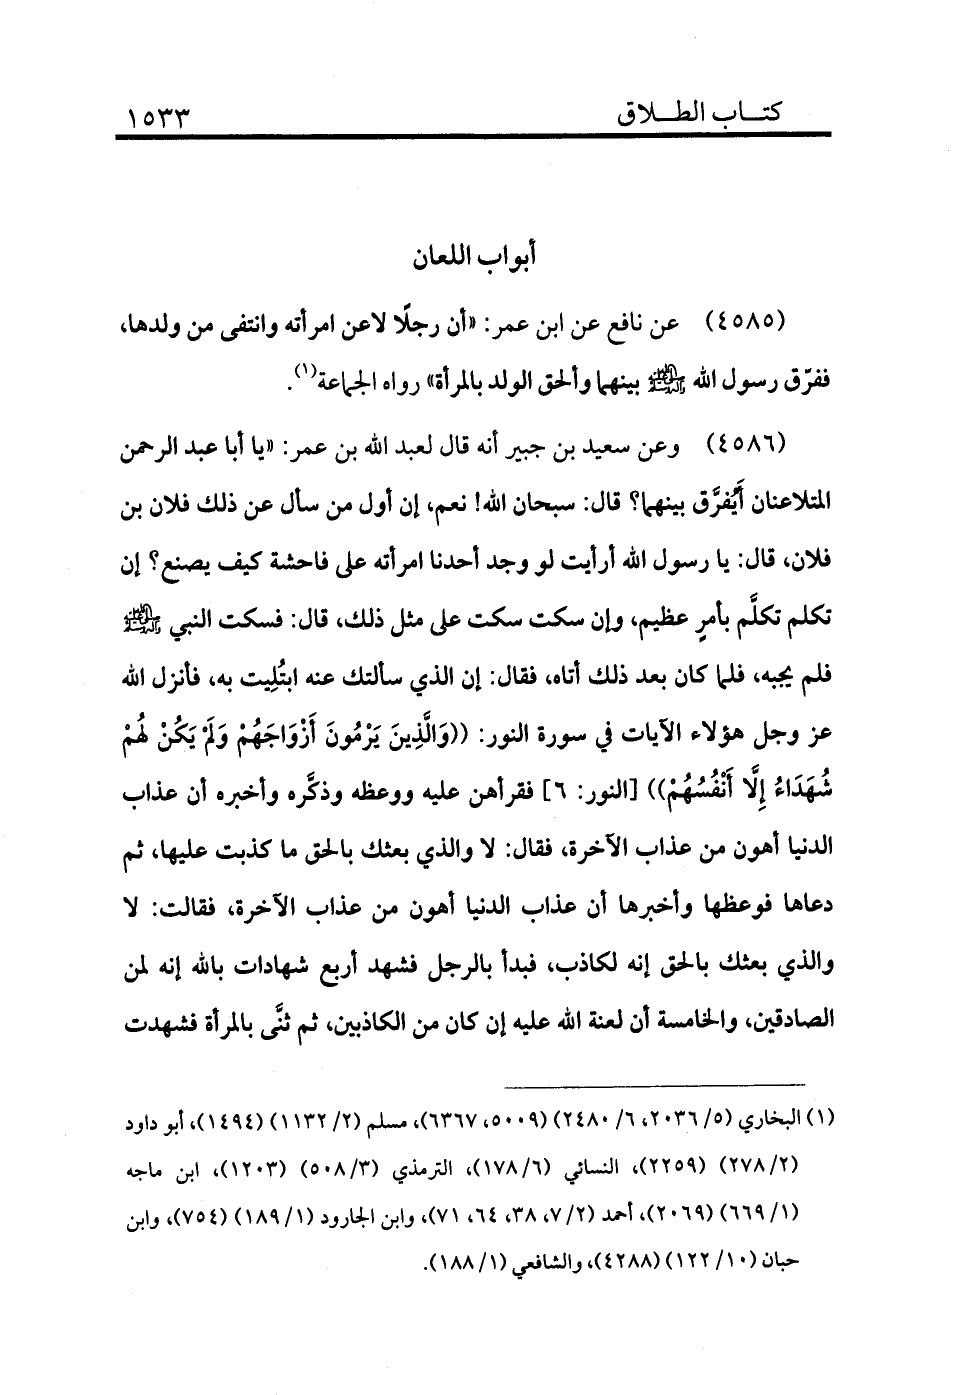 كتاب الطلاق
١٥٣٣
أبواب اللعان
(٤٥٨٥) عن نافع عن ابن عمر: «أن رجلًا لاعن امرأته وانتفى من ولدها،
ففرّق رسول الله ﷺ بينهما وألحق الولد بالمرأة» رواه الجماعة(١).
(٤٥٨٦) وعن سعيد بن جبير أنه قال لعبد الله بن عمر: «يا أبا عبد الرحمن
المتلاعنان أَيُفرَّق بينهما؟ قال: سبحان الله! نعم، إن أول من سأل عن ذلك فلان بن
فلان، قال: يا رسول الله أرأيت لو وجد أحدنا امرأته على فاحشة كيف يصنع؟ إن
تكلم تكلَّم بأمرٍ عظيم، وإن سكت سكت على مثل ذلك، قال: فسكت النبي ﷺ
فلم يجبه، فلما كان بعد ذلك أتاه، فقال: إن الذي سألتك عنه ابتُلِيت به، فأنزل الله
عز وجل هؤلاء الآيات في سورة النور: ((وَالَّذِينَ يَرْمُونَ أَزْوَاجَهُمْ وَلَمْ يَكُنْ لَهُمْ
شُهَدَاءُ إِلَّا أَنْفُسُهُمْ)) [النور: ٦] فقرأهن عليه ووعظه وذكَّره وأخبره أن عذاب
الدنيا أهون من عذاب الآخرة، فقال: لا والذي بعثك بالحق ما كذبت عليها، ثم
دعاها فوعظها وأخبرها أن عذاب الدنيا أهون من عذاب الآخرة، فقالت: لا
والذي بعثك بالحق إنه لكاذب، فبدأ بالرجل فشهد أربع شهادات بالله إنه لمن
الصادقين، والخامسة أن لعنة الله عليه إن كان من الكاذبين، ثم ثنَّى بالمرأة فشهدت
(١) البخاري (٥/ ٢٠٣٦، ٦/ ٢٤٨٠) (٥٠٠٩، ٦٣٦٧)، مسلم (٢/ ١١٣٢) (١٤٩٤)، أبو داود
(٢/ ٢٧٨) (٢٢٥٩)، النسائي (٦/ ١٧٨)، الترمذي (٣/ ٥٠٨) (١٢٠٣)، ابن ماجه
(١/ ٦٦٩) (٢٠٦٩)، أحمد (٢/ ٧، ٣٨، ٦٤، ٧١)، وابن الجارود (١/ ١٨٩) (٧٥٤)، وابن
حبان (١٠/ ١٢٢) (٤٢٨٨)، والشافعي (١/ ١٨٨).